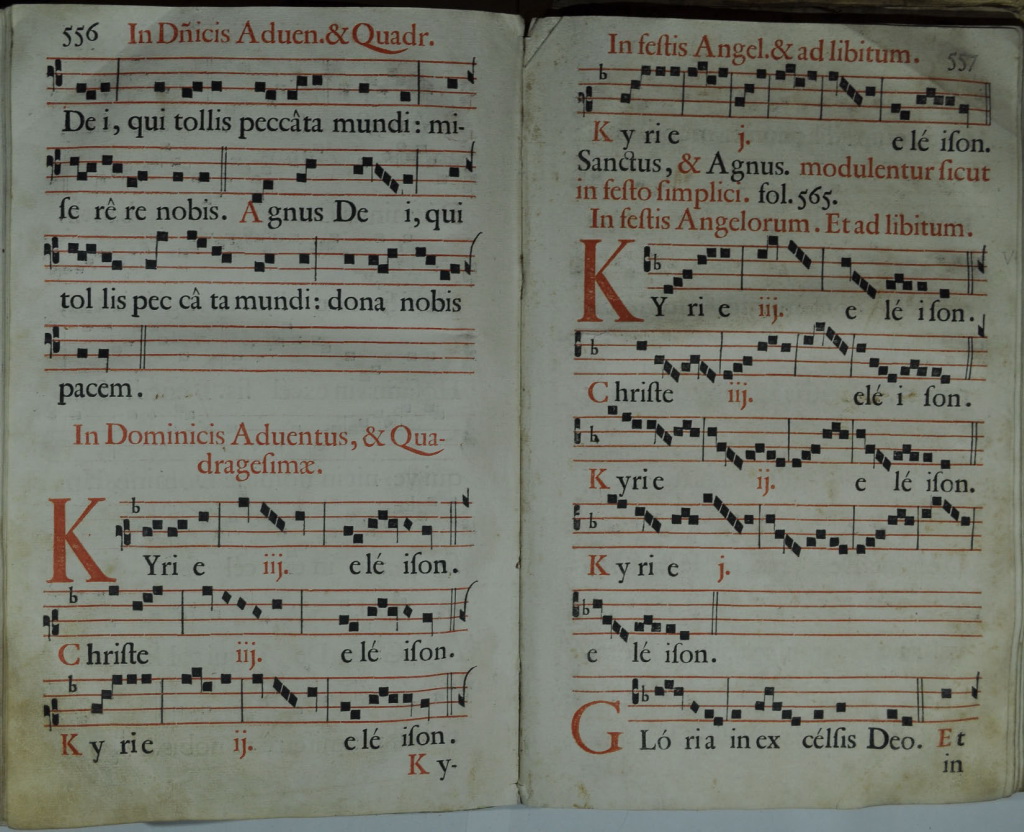 556 In Dñicis Aduen. & Quadr.
De i, qui tollis peccâta mundi: mi-
ſe rê re nobis. A gnus De i, qui
tol lis pec câ ta mundi: dona nobis
pacem.
In Dominicis Aduentus, & Qua-
drageſimæ.
KYri e iij. e lé iſon.
Chriſte iij. e lé iſon.
Ky rie ij. e lé iſon.
Ky-
In feſtis Angel. & ad libitum. 557
Ky rie j. e lé iſon.
Sanctus, & Agnus. modulentur ſicut
in feſto ſimplici. fol. 565.
In feſtis Angelorum. Et ad libitum.
KY ri e iij. e lé iſon.
Chriſte iij. elé i ſon.
Kyrie ij. e lé iſon.
Ky ri e j.
e lé iſon.
GLó ria in ex célſis Deo. Et
in